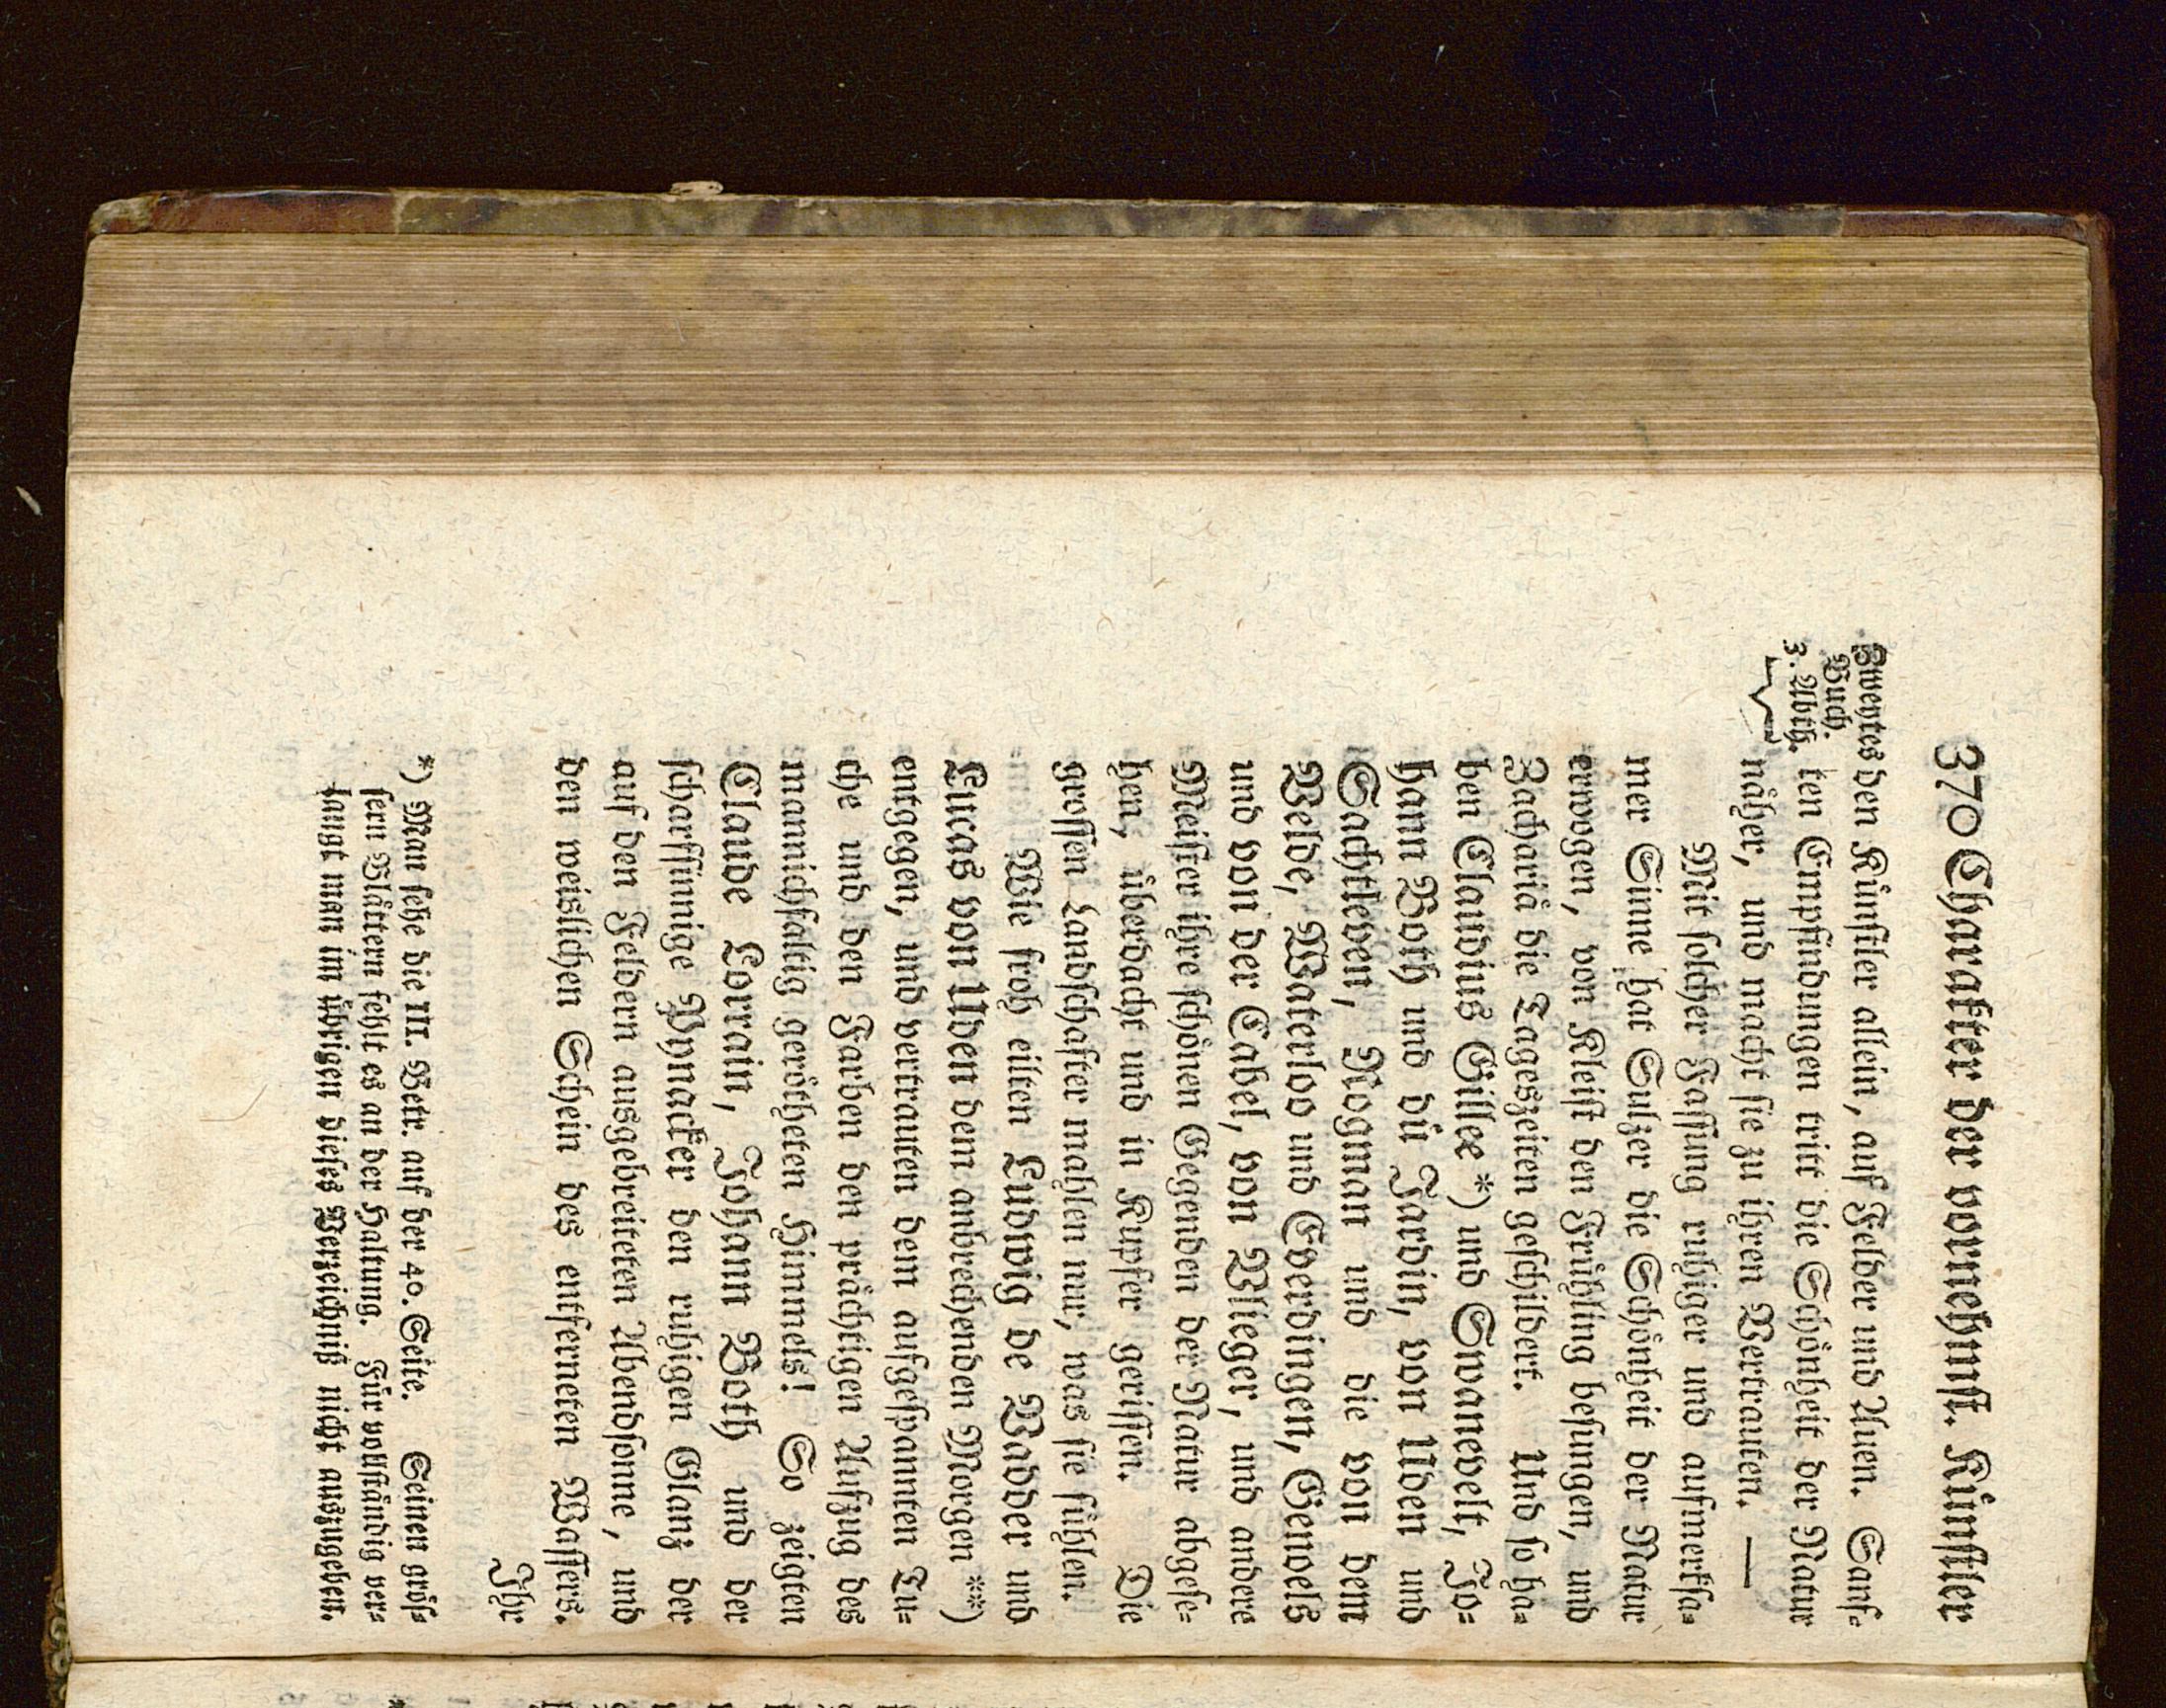 370 Charakter der vornehmst. Künstler
Zweytes
Buch.
3. Abth.
den Künstler allein, auf Felder und Auen. Sanf-
ten Empfindungen tritt die Schönheit der Natur
näher, und macht sie zu ihren Vertrauten. —
Mit solcher Fassung ruhiger und aufmerksa-
mer Sinne hat Sulzer die Schönheit der Natur
erwogen, von Kleist den Frühling besungen, und
Zachariä die Tageszeiten geschildert. Und so ha-
ben Claudius Gillee *) und Swanevelt, Jo-
hann Both und dü Jardin, von Uden und
Sachtleven, Rogman und die von dem
Velde, Waterloo und Everdingen, Genoels
und von der Cabel, von Vlieger, und andere
Meister ihre schönen Gegenden der Natur abgese-
hen, überdacht und in Kupfer gerissen. Die
grossen Landschafter mahlen nur, was sie fühlen.
Wie froh eilten Ludwig de Vadder und
Lucas von Uden dem anbrechenden Morgen **)
entgegen, und vertrauten dem aufgespannten Tu-
che und den Farben den prächtigen Aufzug des
mannichfaltig gerötheten Himmels! So zeigten
Claude Lorrain, Johann Both und der
scharfsinnige Pynacker den ruhigen Glanz der
auf den Feldern ausgebreiteten Abendsonne, und
den weislichen Schein des entferneten Wassers.
Ihr
*) Man sehe die III. Betr. auf der 40. Seite. Seinen grös-
sern Blättern fehlt es an der Haltung. Für vollständig ver-
langt man im übrigen dieses Verzeichniß nicht auszugeben.